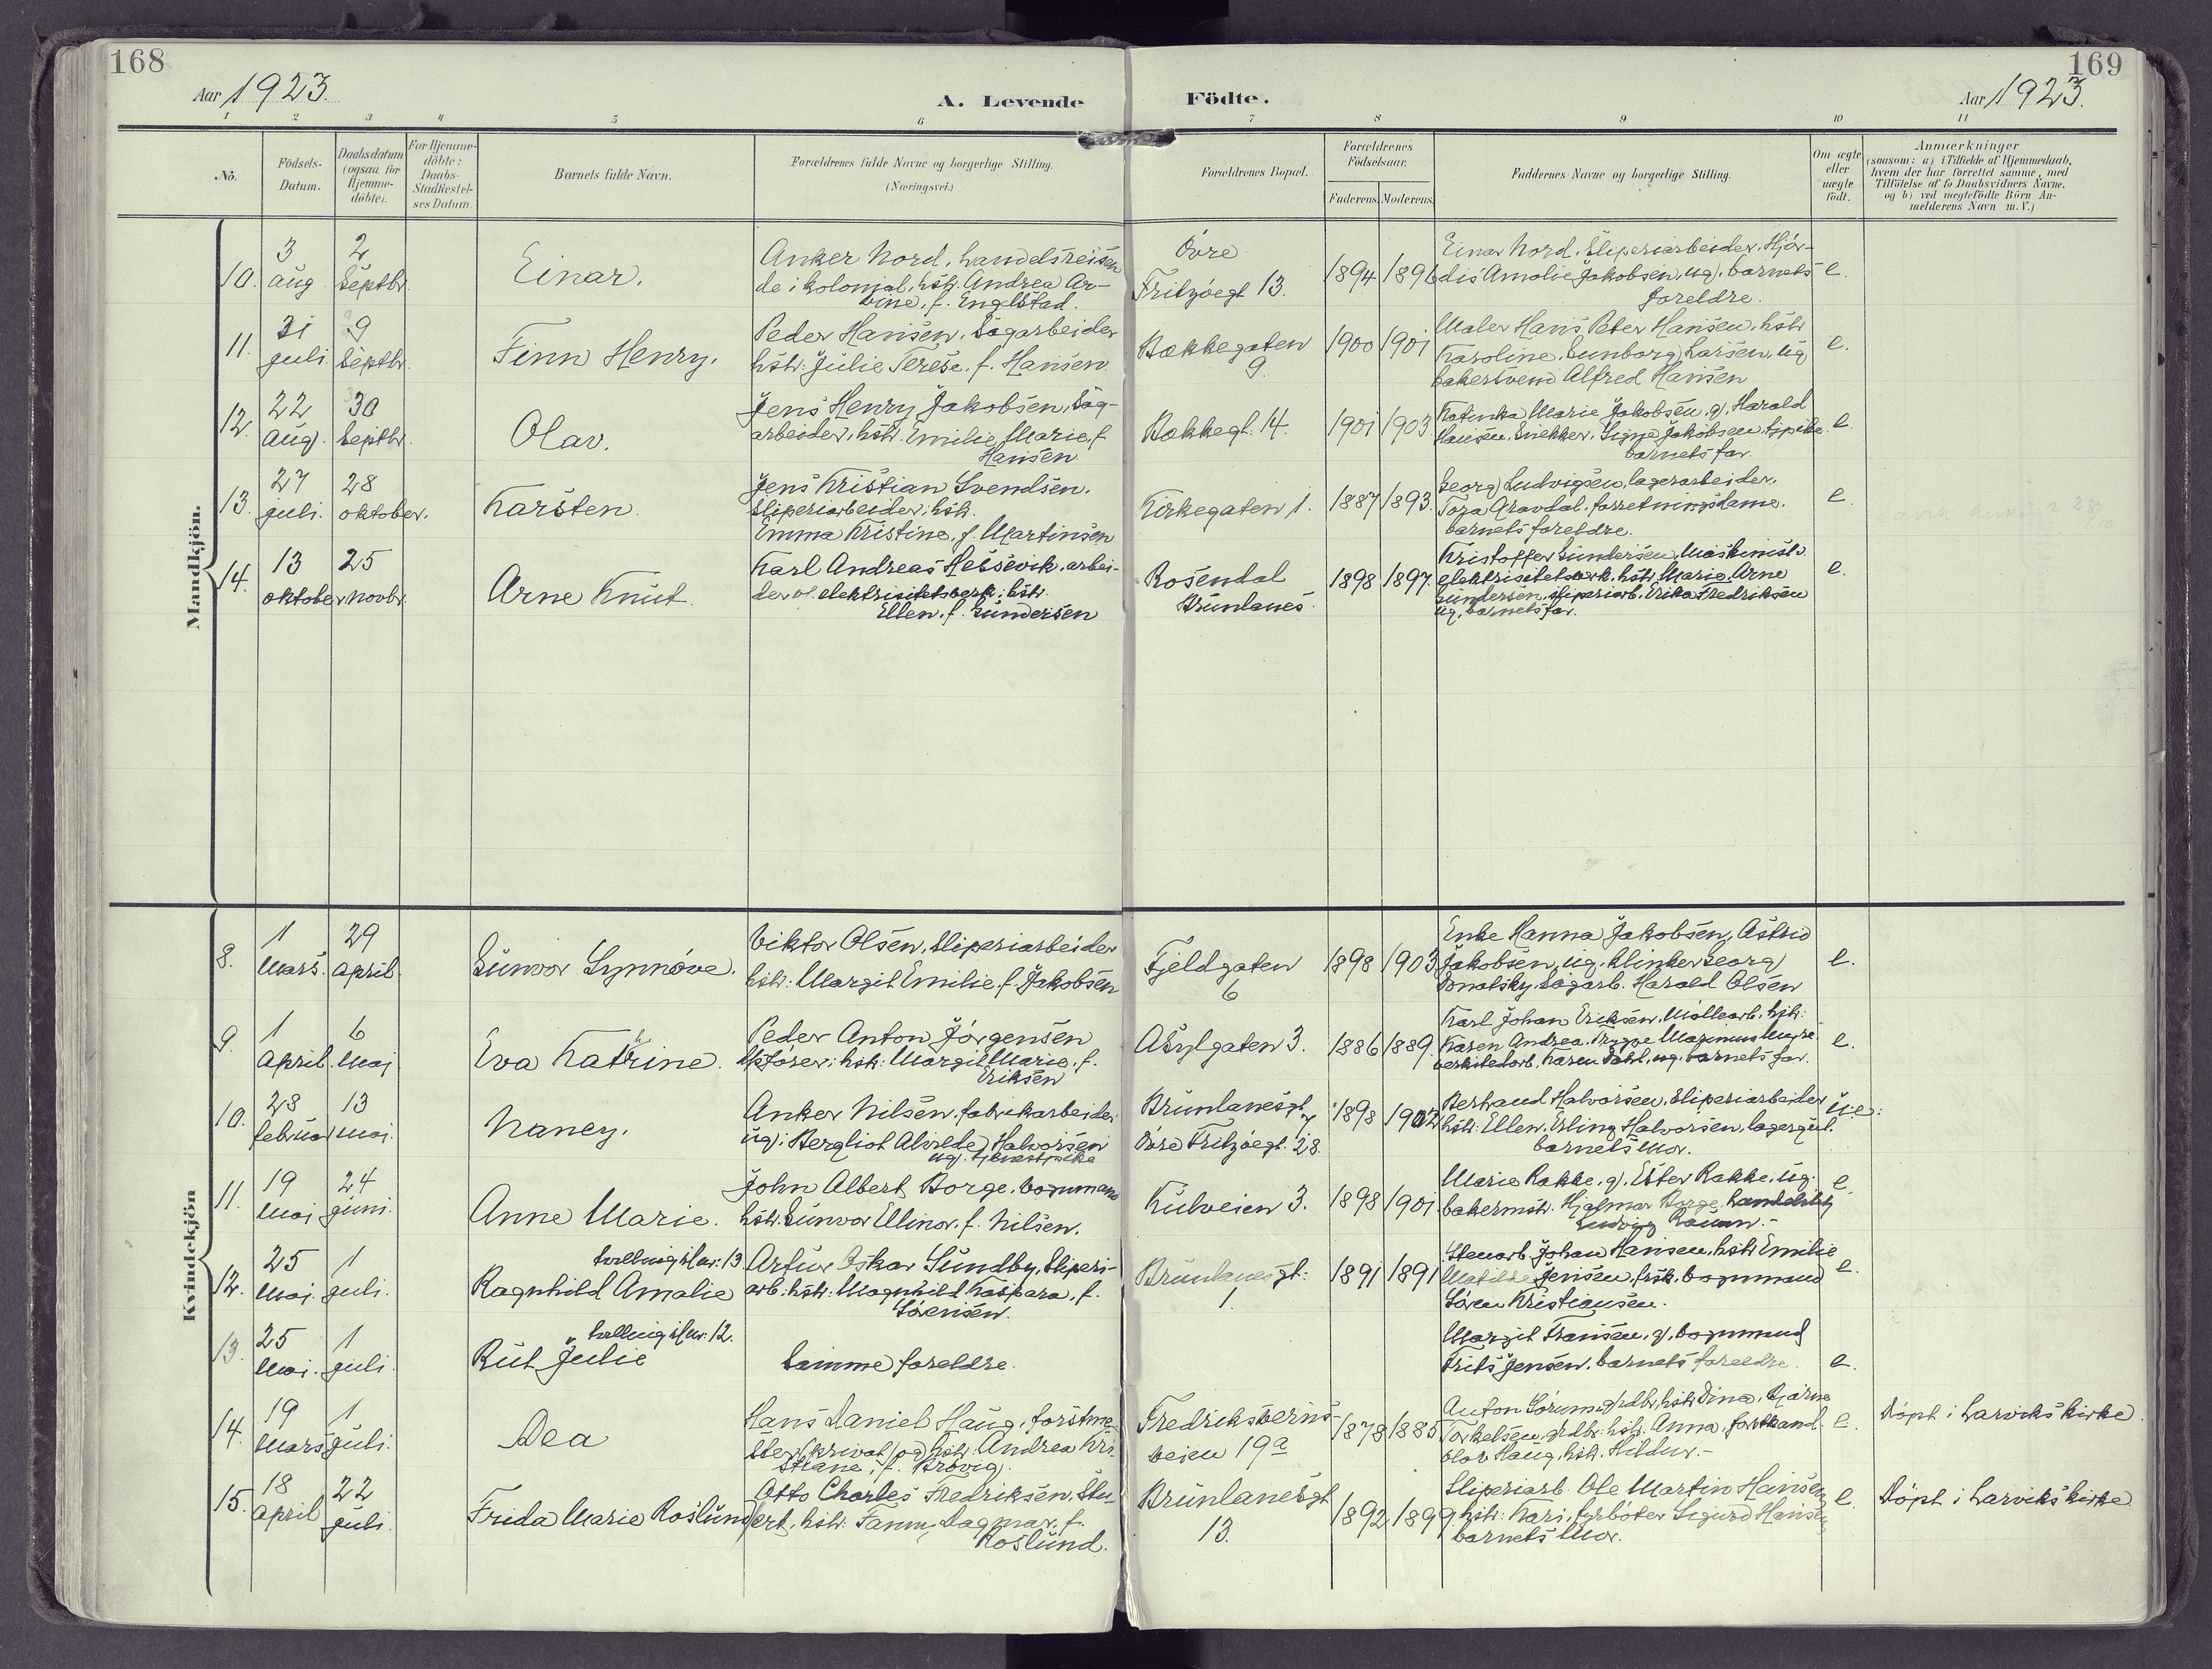 168
169
Aar 1923.
A. Levende Födte.
Aar 1923.
1 2 3 4 5 6 7 8 9 10 11
No.
Födsels-
Datum.
Daabsdatum
(ogsaa for
Hjemme-
döbte).
For Hjemme-
döbte:
Daabs-
Stadfæstel-
ses Datum.
Barnets fulde Navn.
Forældrenes fulde Navne og borgerlige Stilling.
(Næringsvei.)
Forældrenes Bopæl.
Forældrenes
Födselsaar.
Faderens. Moderens.
Faddernes Navne og borgerlige Stilling.
Om ægte
eller
uægte
födt.
Anmærkninger
(saasom: a) i Tilfælde af Hjemmedaab,
hvem der har forrettet samme, med
Tilföielse af to Daabsvidners Navne.
og b) ved uægtefödte Börn An-
melderens Navn m. V.)
Mandkjön.
10. 3 aug 2 Septbr.
Einar.
Anker Nord, handelsreisen
de i kolonial, hstr. Andrea Ar-
vine, f. Engelstad.
Övre
Fritzöegt 13.
1894 1896
Einar Nord, Sliperiarbeider, Hjör-
dis Amalie Jakobsen, ug, barnets
foreldre.
e.
11. 31 juli 9 Septbr.
Finn Henry.
Peder Hansen, Sagarbeider
hstr: Julie Terese, f. Hansen
Bækkegaten
9.
1900 1901
Maler Hans Peter Hansen, hstr
Karoline, Sunborg Larsen, ug
bakersvend Alfred Hansen
e.
12. 22 aug. 30 Septbr.
Olav.
Jens Henry Jakobsen, Sag-
arbeider, hstr. Emilie Marie, f
Hansen.
Bækkegt. 14.
1901 1903.
Katinka Marie Jakobsen, g, Harald
Hansen, Snekker, Signe Jakobsen tjpike.
barnets far.
e.
13. 27 juli. 28 oktober.
Karsten.
Jens Kristian Svendsen,
Sliperiarbeider, hstr.
Emma Kristine, f. Martinsen
Kirkegaten 1.
1887 1893.
Georg Ludvigsen, lagerarbeider.
Tora Aravdal, forretningsdame.
barnets foreldre.
e.
14. 13 oktober 25 novbr.
Arne Knut.
Karl Andreas Hessevik, arbei-
der v. elektrisitetsverk; hstr.
Ellen, f. Gundersen
Rosendal
Brunlanes.
1898 1897.
Kristoffer Gundersen, Maskinist v.
elektrisitetsverk, hstr. Marie, Arne
Gundersen, sliperiarb. Erika Fredriksen
ug, barnets far.
e.
Kvindekjön
8. 1 Mars. 29 April
Gunvor Synnöve.
Viktor Olsen, Sliperiarbeider
hstr: Margit Emilie, f. Jakobsen
Fjeldgaten
6
1898 1903
Enke Hanna Jakobsen, Astrid
Jakobsen, ug, klinker Georg
Donalsky, Sagarb. Harald Olsen
e.
9. 1 April. 6 Mai
Eva Katrine.
Peder Anton Jörgensen
hstr: Margit Marie, f.
Eriksen
Asylgaten 3.
1886 1889.
Karl Johan Eriksen, Möllearb. hstr:
Karen Andrea, Trygve Maximus Myre
verkstedarb, Karen Dahl, ug, barnets far.
e.
10. 28 februar 13 mai.
Nancy.
Anker Nilsen, fabrikarbeider
ug; Bergliot Alvilde Halvorsen
ug. tjenestpike
Brunlanesgt.
7
Övre Fritzöegt. 28.
1898 1902
Berhard Halvorsen, Sliperiarbeider
hstr: Ellen, Erling Halvorsen, lagergut.
barnets mor.
u.e.
11. 19 Mai 24 juni.
Anne Marie.
John Albert Borge, bommand
hstr. Gunvor Ellinor, f. Nilsen.
Kulveien 3.
1898 1901.
Marie Rakke, g, Ester Rakke, ug.
bakermstr. Hjalmar Borge, handelsbtj
Ludvig
e.
12. 25 Mai. 1 juli.
tvilling til nr: 13
Ragnhild Amalie
Artur Oskar Sundby, Sliperi-
arb. hstr: Magnhild Kaspara, f.
Sörensen.
Brunlanesgt:
1.
1891 1891
Stenarb Johan Hansen, hstr Emilie
Matilde Jensen, frsk, bommand
Sören Kristiansen.
e.
13. 25 Mai. 1 juli.
tvilling til nr: 12.
Rut Julie
Samme foreldre.
Margit Fransen, g, bommand
Frits Jensen, barnets foreldre.
e.
14. 19 Mars 1 juli.
Dea
Hans Daniel Haug, forstme-
ster (privat) og hstr: Andrea Kri
stiane, f. Brövig.
Fredriksverns-
veien 19a
1878 1885
Anton Sörum, grdbr, hstr Dina, Bjarne
Torkelsen, grdbr: hstr. Anna, forstkand.
Olav Haug, hstr. Hildur.-
e.
Döpt i Larviks kirke.
15. 18 April 22 juli.
Frida Marie Roslund
Otto Charles Fredriksen, Stu-
ert, hstr: Fanny Dagmar, f.
Roslund.
Brunlanesgt
13.
1892 1899
Sliperiarb. Ole Martin Hansen
g, hstr: Kari, fyrböter Sigurd Hansen
barnets Mor.
e.
Döpt i Larviks kirke.